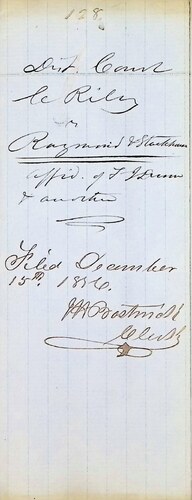 128.
Dist. Court
C Riley
vs
Raymond & Stackhouse
affid. of F
& another
Filed December
15th. 1856.
Clerk